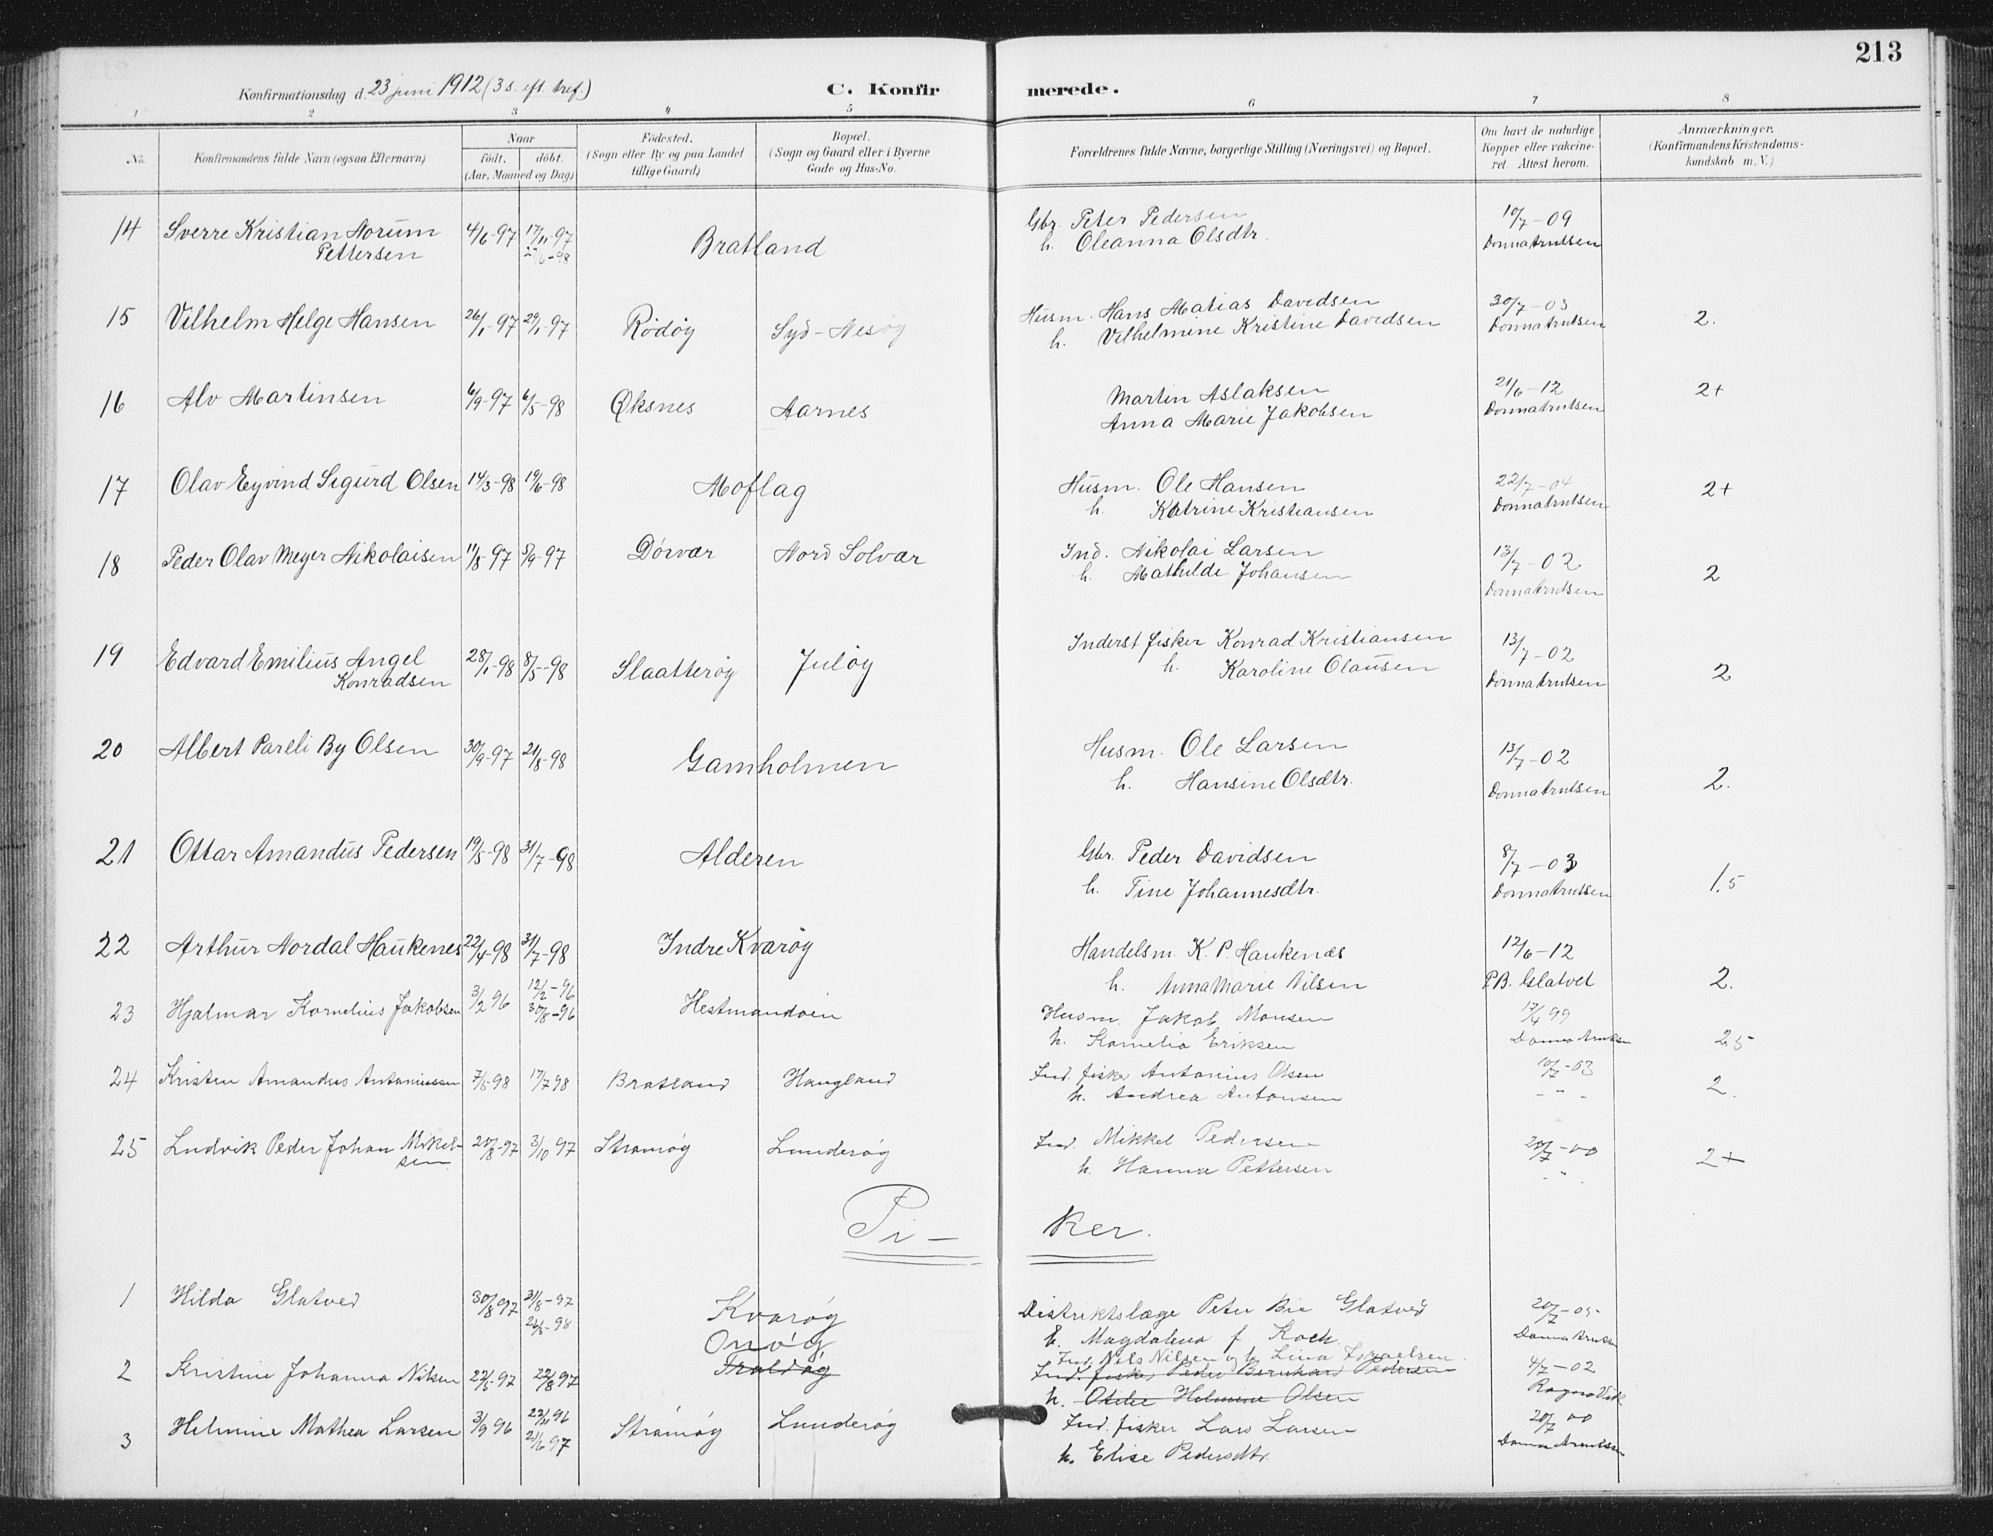 213
Konfirmationsdag d. 23 juni 1912 (3 s. eft. tref.) C. Konfirmerede.
1 2 3 4 5 6 7 8
No. Konfirmandens fulde Navn (ogsaa Efternavn) Naar født. døbt. (Aar, Maaned og Dag) Fødested. (Sogn eller By og paa Landet tillige Gaard) Bopæl. (Sogn og Gaard eller i Byerne Gade og Hus-No. Forældrenes fulde Navne, borgerlige Stilling (Næringsvei) og Bopæl. Om havt de naturlige Kopper eller vakcineret. Attest herom. Anmærkninger. (Konfirmandens Kristendomskundskab m. V.)
14 Sverre Kristian Norum 4/6-97 17/11-97 Bratland Gbr. Peter Pedersen 10/7-09
Pettersen h. Oleanna Olsdtr. Donna Arntsen
15 Vilhelm Helge Hansen 26/1-97 29/1-97 Rödöy Syd-Nesöy Husm. Hans Matias Davidsen 30/7-03 2.
h. Vilhelmine Kristine Davidsen Donna Arntsen
16 Alv Martinsen 6/9-97 6/5-98 Øksnes Aarnes Martin Aslaksen 21/6-12 2+
Anna Marie Jakobsen Donna Arntsen
17 Olav Eyvind Sigurd Olsen 14/3-98 19/6-98 Moflag Husm. Ole Hansen 22/7-04 2+
h. Katrine Kristiansen Donna Arntsen
18 Peder Olav Meyer Nikolaisen 11/8-97 5/9-97 Dörvær Nord Solvær Ind. Nikolai Larsen 13/7-02 2
h. Mathilde Johansen Donna Arntsen
19 Edvard Emilius Angel 28/1-98 8/5-98 Slaatteröy Julöy Inderst fisker Konrad Kristiansen 13/7-02 2
Konradsen h. Karoline Olausen Donna Arntsen
20 Albert Pareli By Olsen 30/9-97 21/8-98 Gamholmen Husm. Ole Larsen 13/7-02 2.
h. Hansine Olsdtr. Donna Arntsen
21 Ottar Amandus Pedersen 19/5-98 31/7-98 Alderen Gbr. Peder Davidsen 8/7-03 1.5
h. Tine Johannesdtr. Donna Arntsen
22 Arthur Nordal Haukenes 22/4-98 31/7-98 Indre Kvaröy Handelsm. K. P. Haukenæs 12/6-12 2.
h. Anna Marie Nilsen P.B. Glatvet
23 Hjalmar Kornelius Jakobsen 3/2 96 12/2-96 30/8-96 Hestmandöien Husm. Jakob Monsen 17/4 99 2.5
h. Kornelia Eriksen Donna Arntsen
24 Kristen Amandus Antoniussen 7/5-98 17/7 98 Bratland Haugland Ind. fisker Antonius Olsen 10/7-03 2.
h. Andrea Antonsen - " -
25 Ludvik Peder Johan Mikel- 20/8-97 3/10 97 Strömöy Lunderöy Ind. Mikkel Pedersen 20/7-00 2+
sen h. Hanna Pettersen - " -
Pi- ker.
1 Hilda Glatved 30/8 97 31/8-97 Kvaröy Distriktslæge Peter Bie Glatved 20/7-05
h. Magdalena f. Koch Donna Arntsen
Onöy Ind. Nils Nilsen og h. Lina Israelsen
2 Kristine Johanna Nilsen 22/5-97 22/8 97 Traldöy Ind. fisker Peder Bernhard Pedersen 4/7-02
h. Otelie Helmine Olsen Ragna Vik
3 Helmine Mathea Larsen 3/9 96 22/11 96 21/6 97 Strömöy Lunderöy Ind. fisker Lars Larsen 20/7 00
h. Elise Pedersdtr. Donna Arntsen